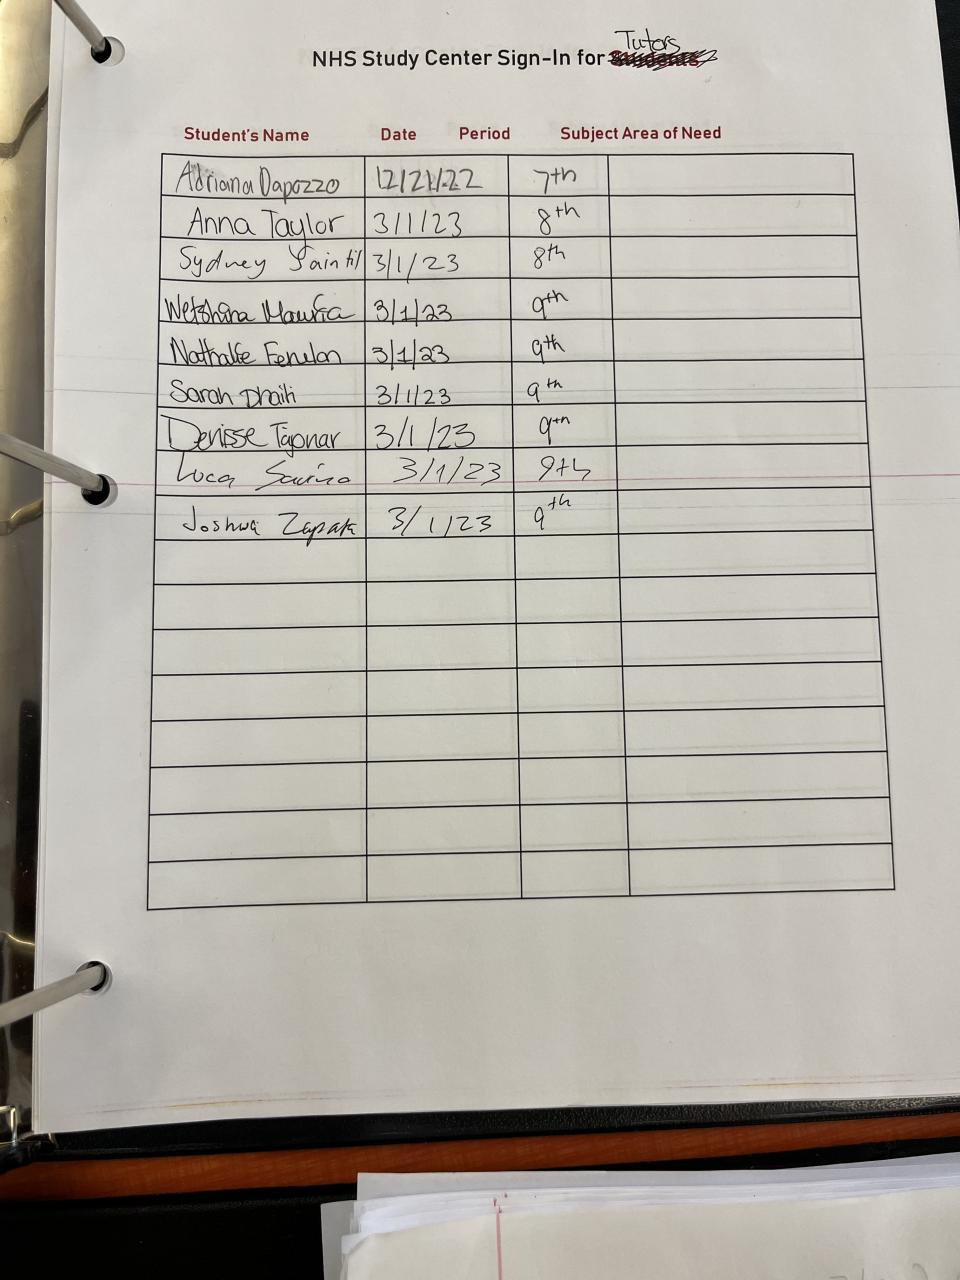 Tutors
NHS Study Center Sign-In for
Student's Name Date Period Subject Area of Need
Adriana Dapozzo 12/21/22 7th
Anna Taylor 3/1/23 8th
Sydney Saintil 3/1/23 8th
3/1/23 9th
Nathalie Fenelon 3/1/23 9th
Sarah 3/1/23 9th
Denisse 3/1/23 9th
Luca 3/1/23 9th
Joshua Zapata 3/1/23 9th